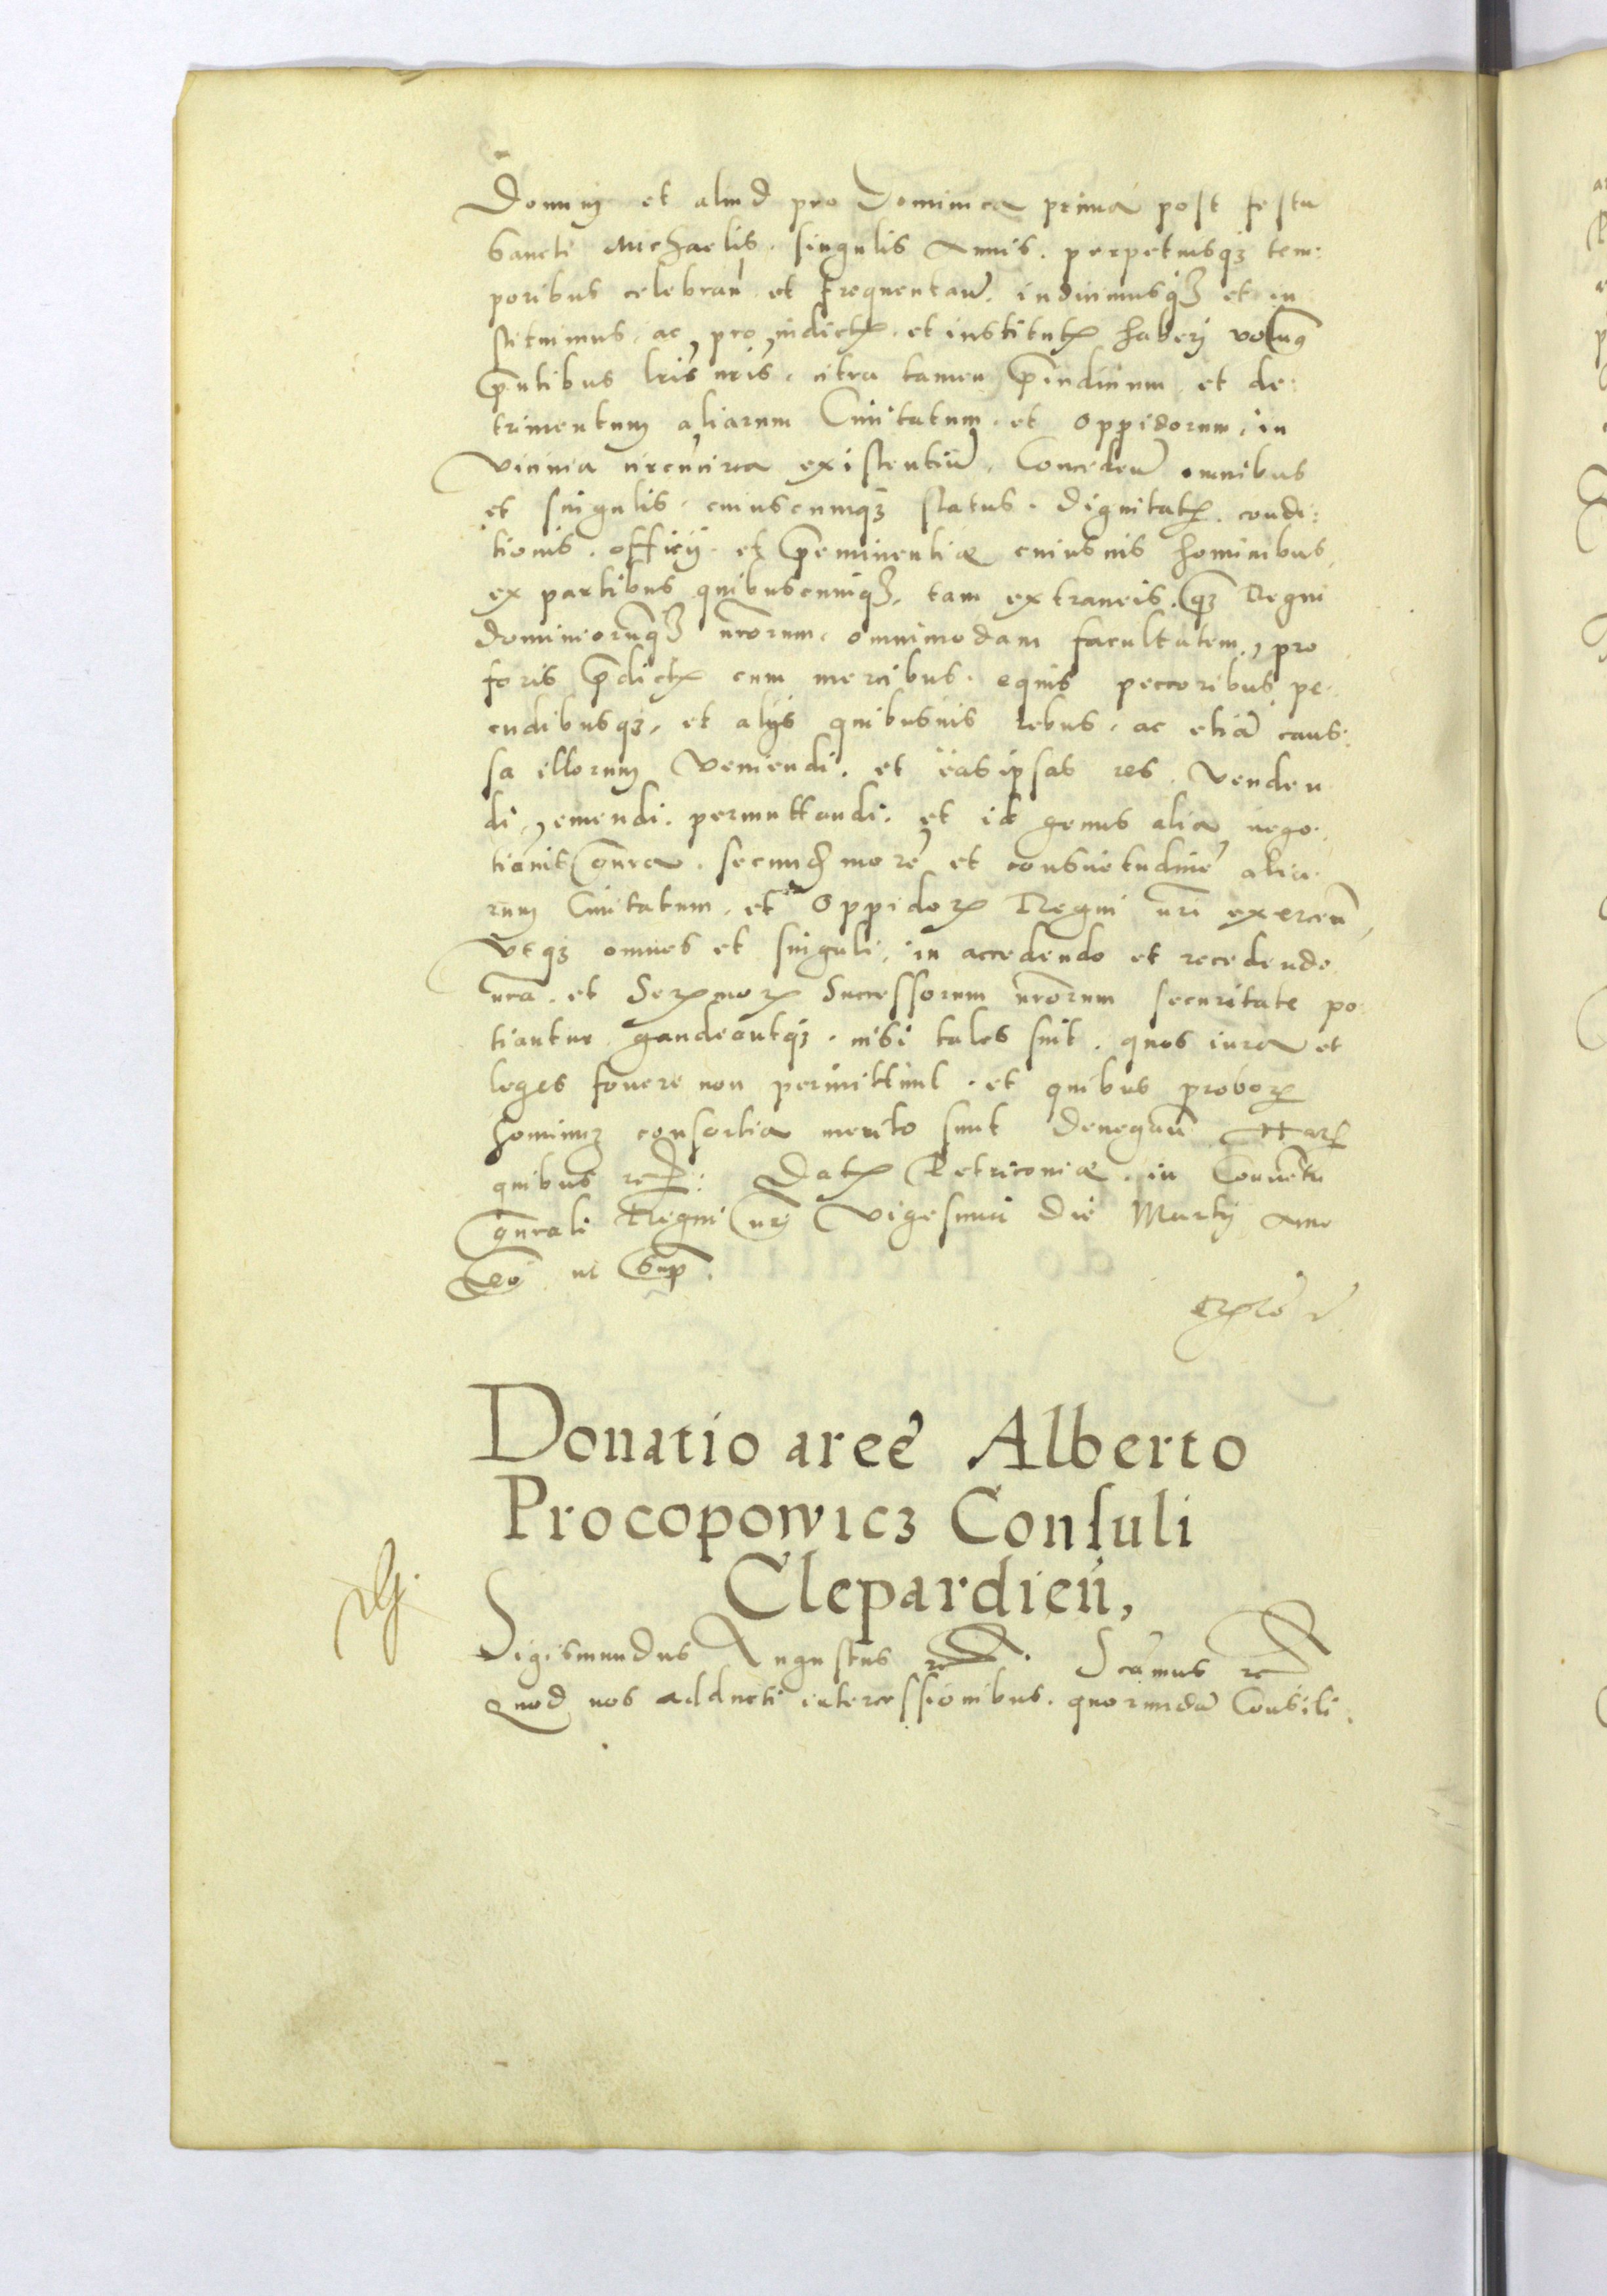 Domini et aliud pro Dominica prima post festu
Sancti Michaelis. singulis Annis. perpetuisqȝ tem:
poribus celebrań et frequentań. indicimusqȝ et in
stituimus. ac, pro indictꝭ. et institutꝭ haberi volumꝰ
p̄ntibus lr̄is nr̄is. citra tamen p̄iudicium et de:
trimentum aliarum Ciuitatum. et Oppidorum. in
vicinia circũcirca existentiũ. Conceden̄ omnibus
et singulis. cuiuscunqȝ status. dignitatꝭ. condi:
tionis. officij. et p̄eminentiæ cuiusuis hominibus,
ex partibus quibuscunqȝ, tam extraneis. qȝ Regni
dominiorũqȝ nr̄orum. omnimodam facultatem, pro
foris p̄dictꝭ cum mercibus. equis peccoribus pe.
cudibusqȝ, et alijs quibusuis rebus. ac etiã caus:
sa illorum veniendi. et eas ipsas res. venden
di, emendi. permuttandi. et id genus alia nego:
tionũ onera. secund̃ morẽ et consuetudinẽ alia.
rum Ciuitatum. et Oppidoꝝ Regni nr̄i exercen̄,
vtqȝ omnes et singuli, in accedendo et recedendo
nr̄a. et Serꝫmoꝝ Successorum nr̄orum securitate po
tiantur gaudeantqȝ. nisi tales sint. quos iura et
leges fouere non permittunt. et quibus proboꝝ
hominum consortia merito sunt denegan̄ Harꝫ
quibus rc̄: Datꝭ Petricouiæ. in Conuẽtu
gn̄rali Regni nr̄i vigesima die Martij Anno
Do ut Sup̄.
Donatio areę Alberto
Procopowicz Consuli
Clepardień,
Sigismundus Augustus rc̄. Scimus rc̄
Quod nos adducti intercessionibus. quorundã Consili.